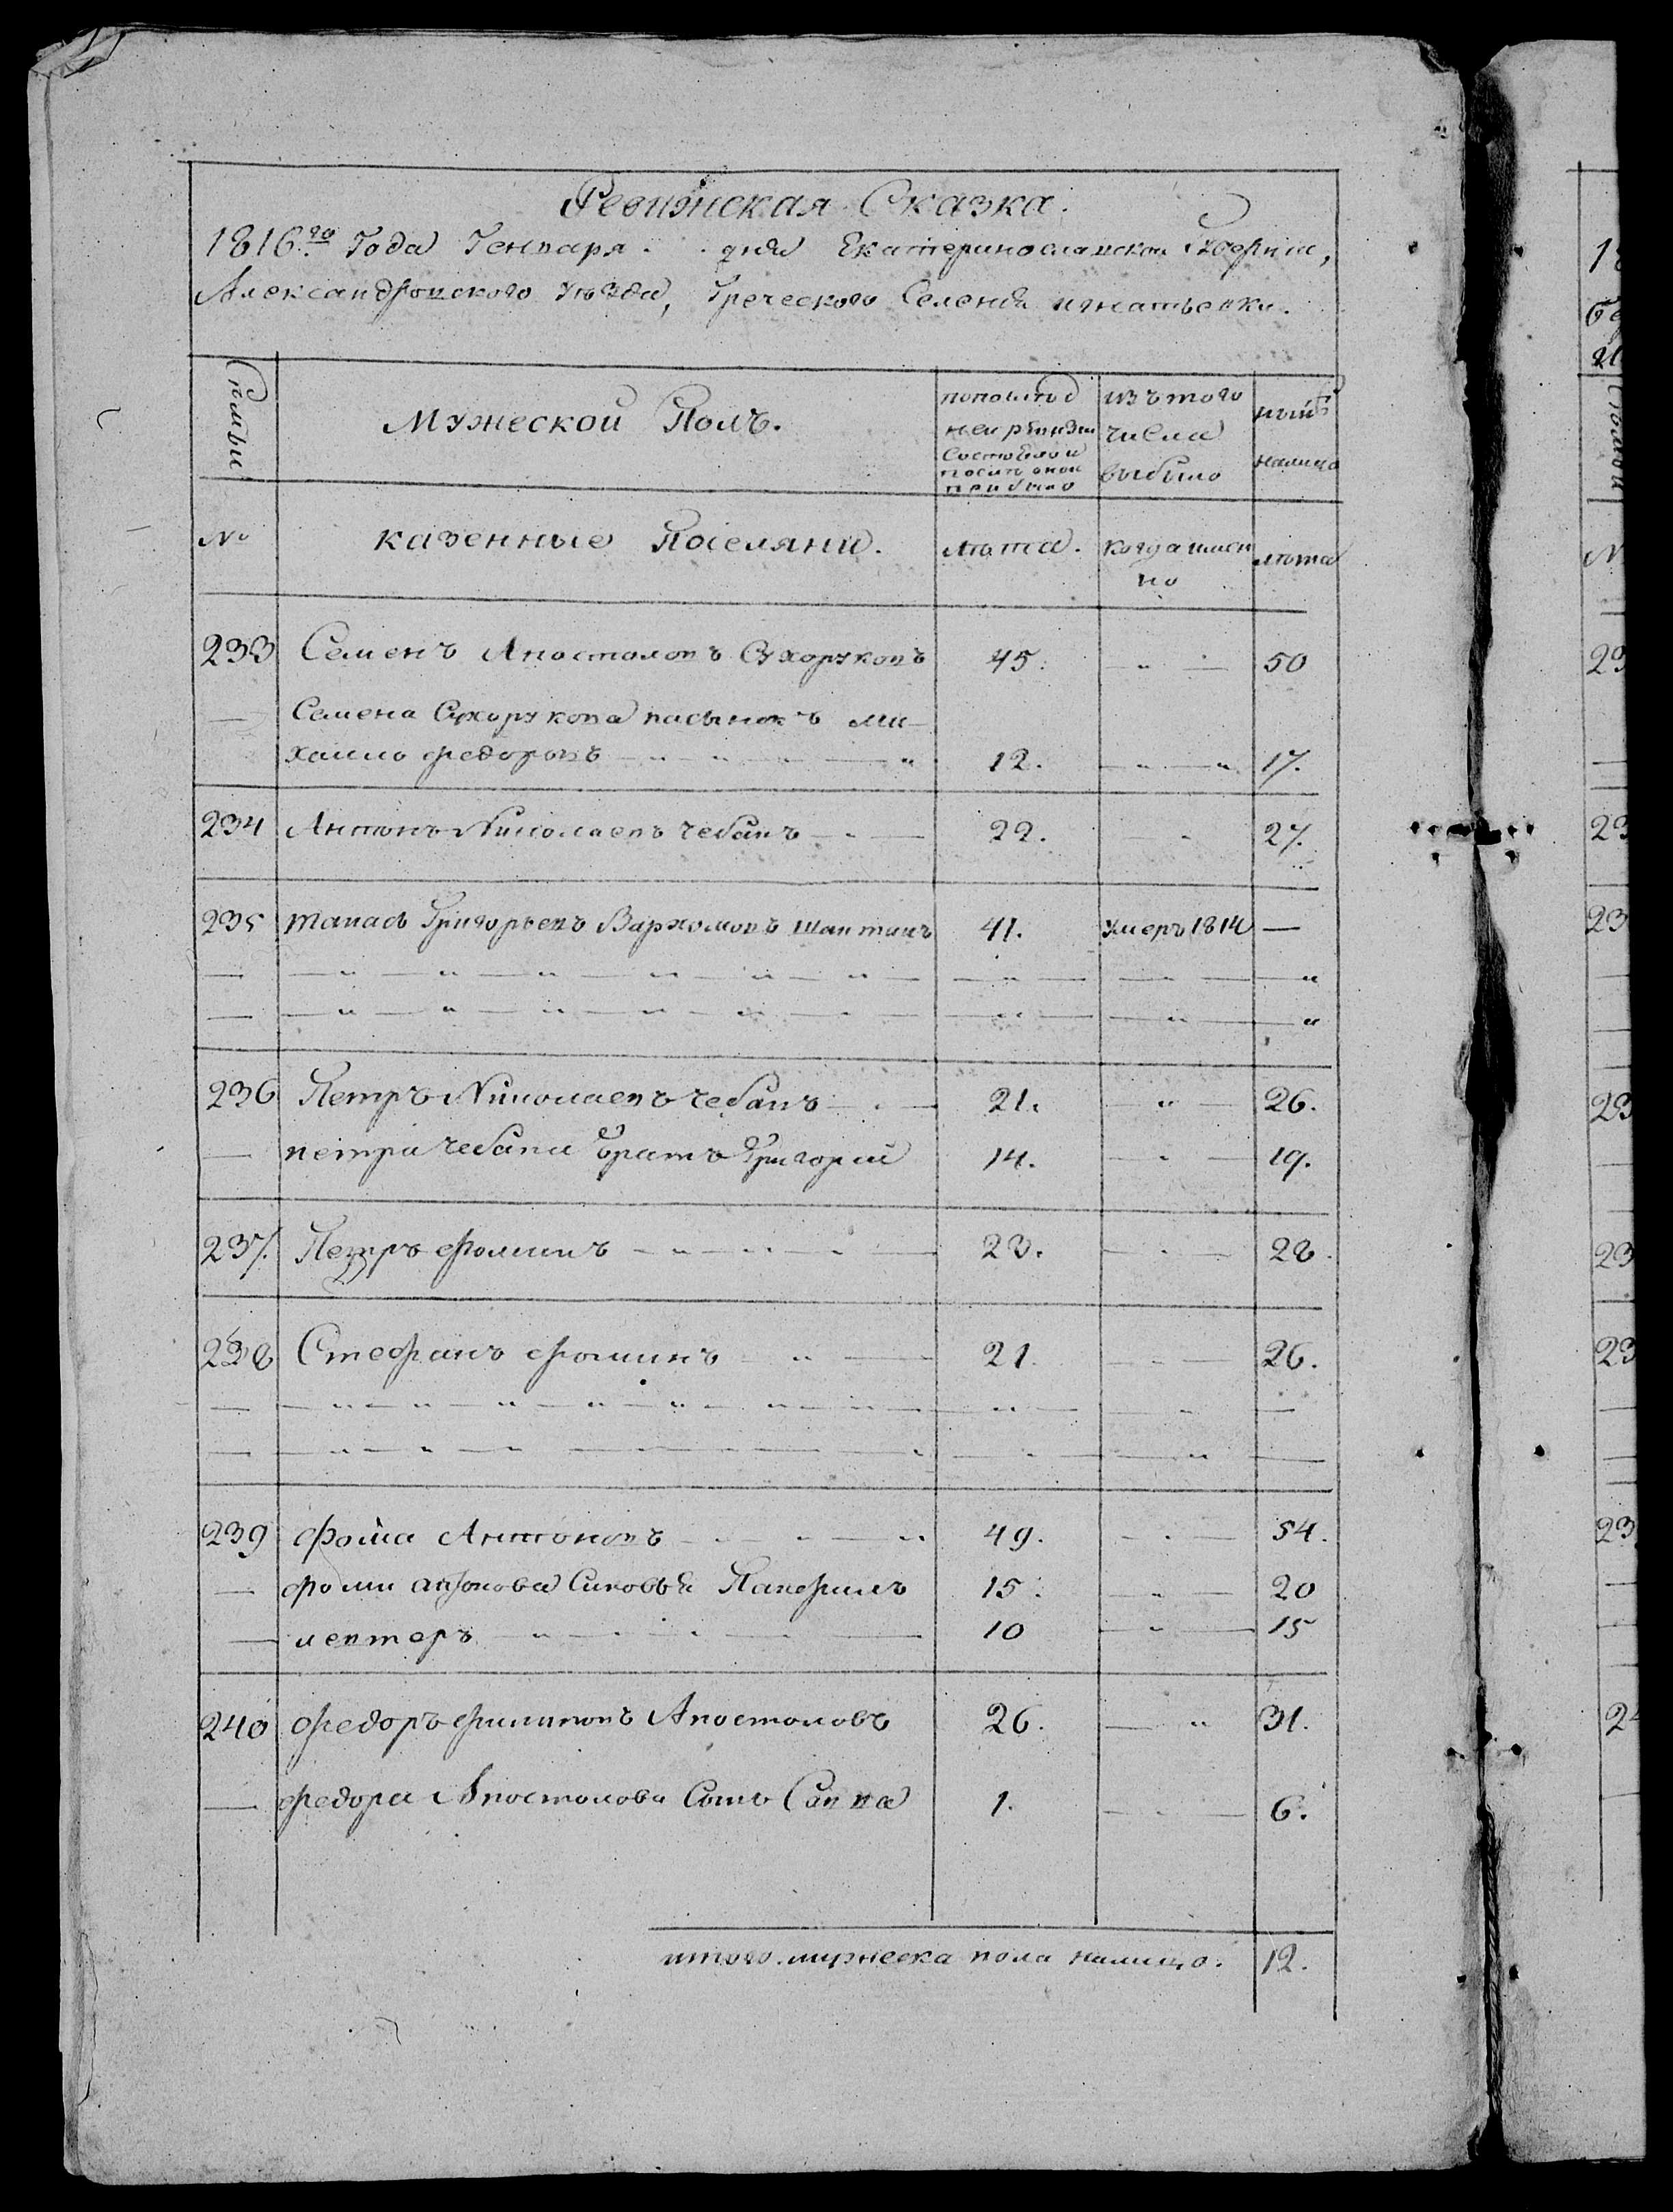 Ревижская Сказка.
1816го Года Генваря дня Екатеринославской Губернии,
Александровского уѣзда, Греческого Селенія игнатьевки.
Семьи
Мужеской Полъ.
изъ того числа выбыло
нынѣ налицо
№ казенные Поселяни. лѣта. когда имен но лѣта
233 Семенъ Апостоловъ Сухоруковъ 45. — „ — 50
— Семена Сухорукова пасынокъ ми-
хаило федоровъ — „ — „ — „ 12. — „ — „ 17.
234 Антонъ Николаевъ чебанъ — „ — 22. — „ 27.
235 танасъ Григорьевъ Вархомовъ шаптинъ 41. умеръ 1814 —
236 Петръ Николаевъ чебанъ — „ — 21. — „ — 26.
— петра чебана братъ Григорій 14. — „ — 19.
237. Петръ фоминъ — „ — „ — 23. — „ — 28.
238 Стефанъ фоминъ — „ — 21 — „ — 26.
239 фома Антоновъ — „ — „ 49. — „ — 54.
— фоми антонова Сыновья Панфилъ 15. — „ — 20
— иептеръ — „ — „ — 10 — „ — 15
240 федоръ филиповъ Апостоловъ 26. — „ 31.
— федора Апостолова Сынъ Савва 1. — „ — 6.
итого мужеска пола налицо. 12.
18
23
23
23
23
23
23
23
24